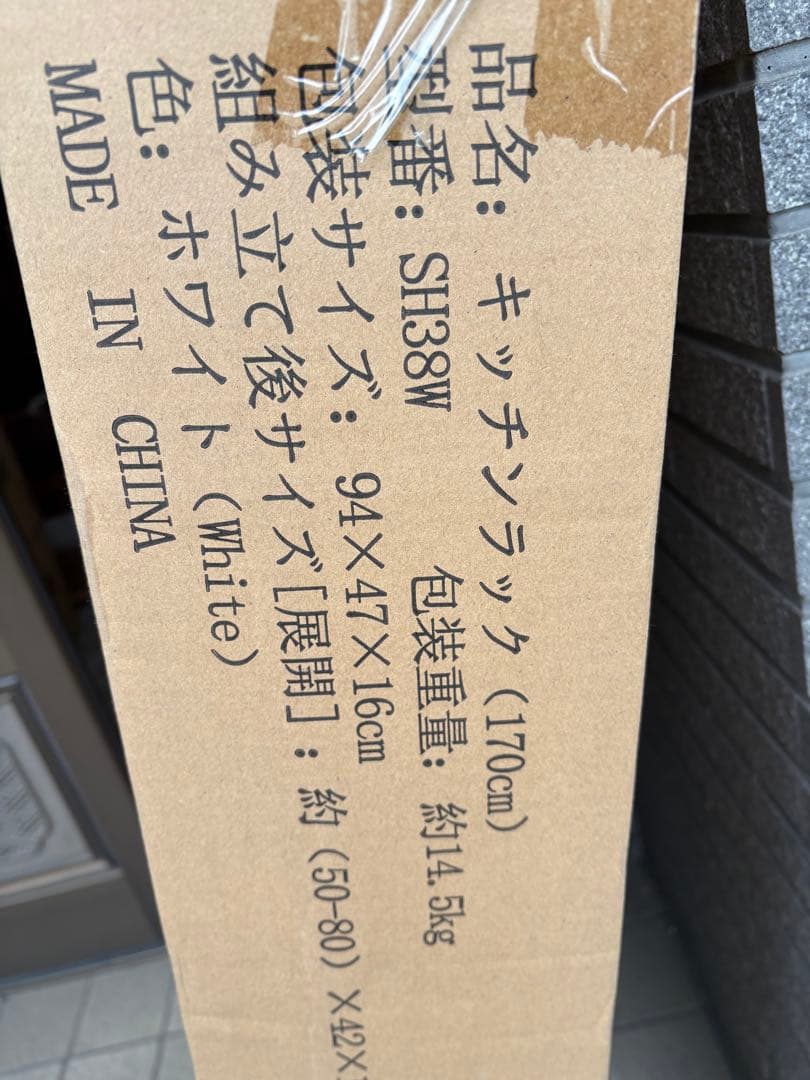 品名: キッチンラック (170cm)
型番: SH38W 包装重量: 約14.5kg
包装サイズ: 94×47×16cm
組み立て後サイズ[展開]: 約(50-80)×42×
色: ホワイト(White)
MADE IN CHINA